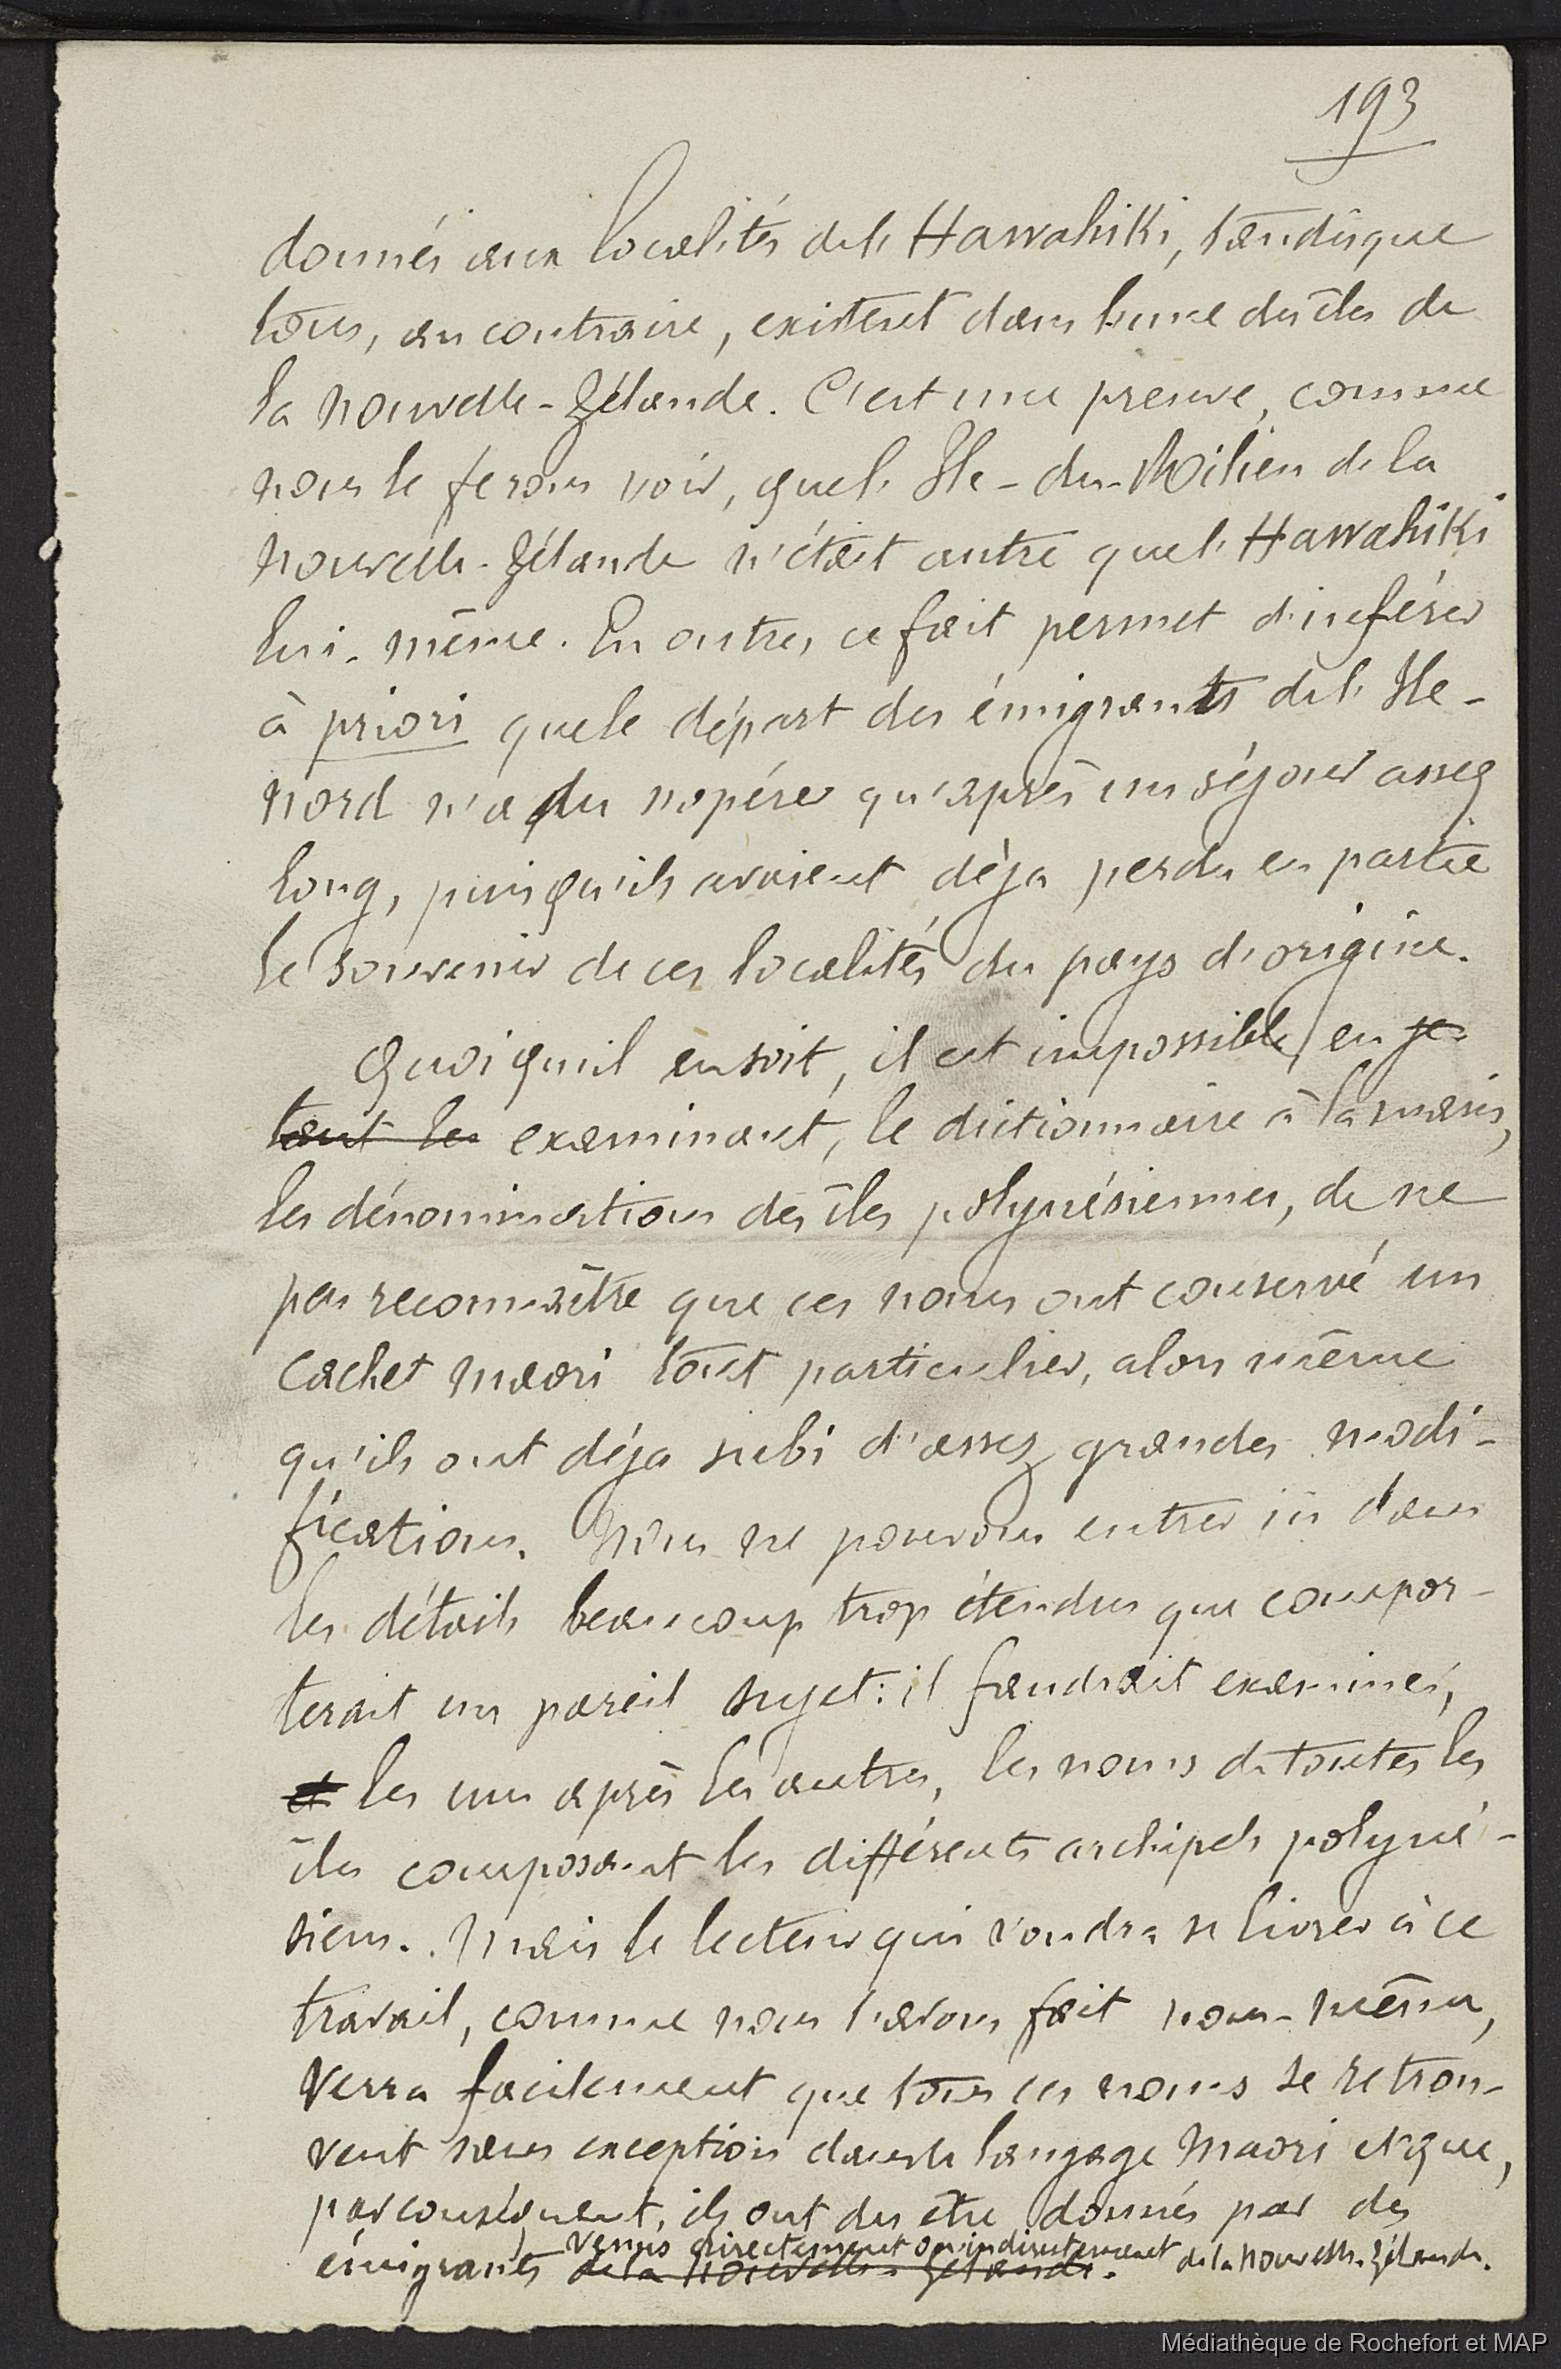 193
donnés aux localités de l'Hawahiki, tandisque
tous, au contraire, existent dans l'une des îles de
la Nouvelle-Zélande. C'est une preuve, comme
nous le ferons voir, que l'Ile-du-Milieu de la
Nouvelle-Zélande n'était autre que l'Hawahiki
lui-même. En outre, ce fait permet d'inférer
à priori que le départ des émigrants de l'Ile-
Nord n'a du s'opérer qu'après un séjour assez
long, puisqu'ils avaient déja perdu en partie
le souvenir de ces localités du pays d'origine.
Quoiqu'il en soit, il est impossible, en je-
tant les examinant, le dictionnaire à la main,
les dénominations des îles polynésiennes, de ne
pas reconnaître que ces noms ont conservé un
cachet maori tout particulier, alors même
qu'ils ont déja subi d'assez grandes modi-
fications. Nous ne pouvons entrer ici dans
les détails beaucoup trop étendus que compor-
terait un pareil sujet: il faudrait examiner,
et les uns après les autres, les noms de toutes les
îles composant les différents archipels polyné-
siens. Mais le lecteur qui voudra se livrer à ce
travail, comme nous l'avons fait nous-même,
verra facilement que tous ces noms se retrou-
vent sans exception dans le langage Maori et que,
par conséquent, ils ont du être donnés par des
venus directement ou indirectement
émigrants de la Nouvelle-Zélande. de la Nouvelle-Zélande.
Médiathèque de Rochefort et MAP